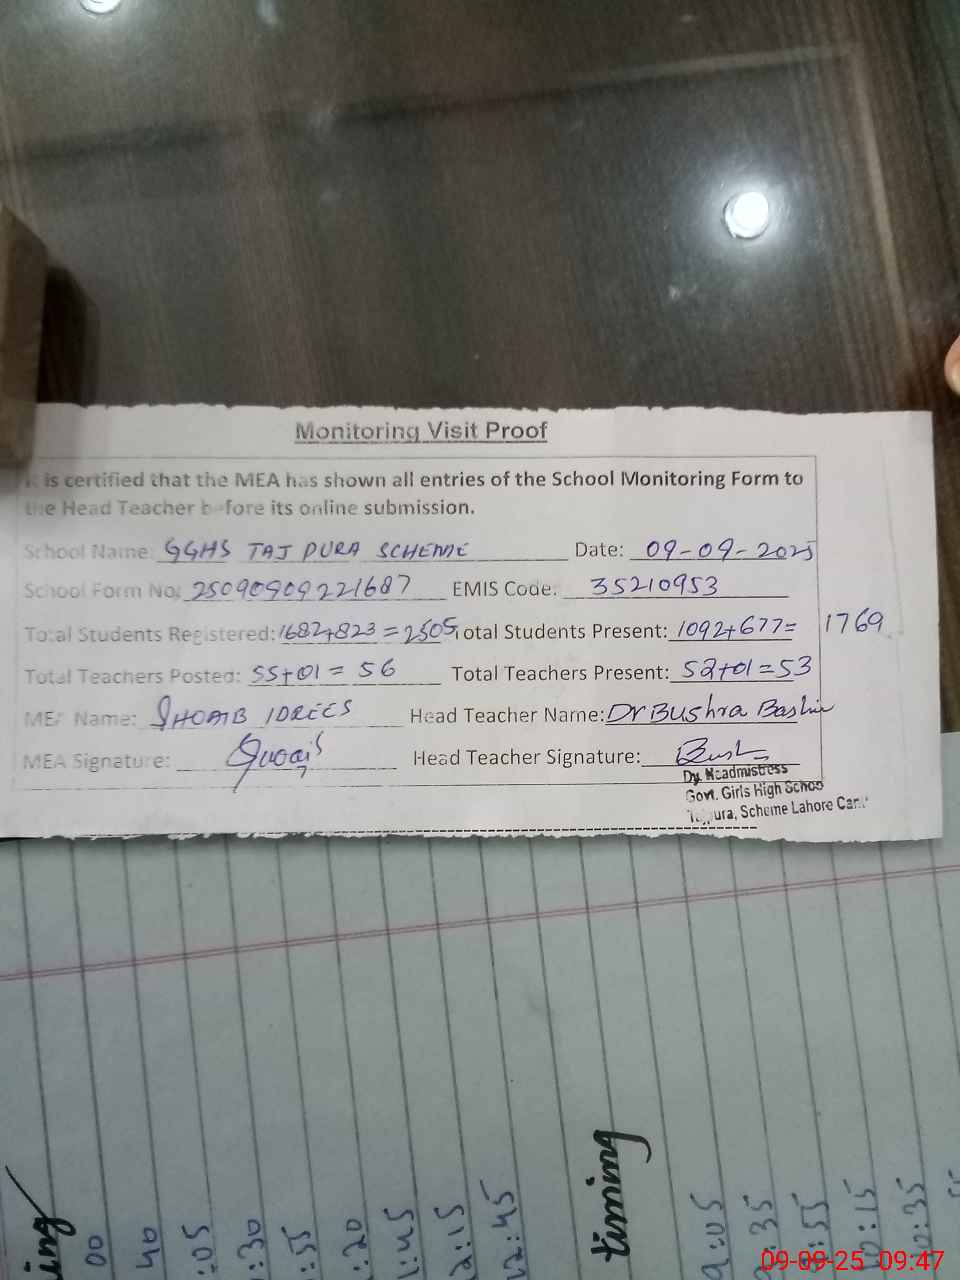 Monitoring Visit Proof
It is certified that the MEA has shown all entries of the School Monitoring Form to
the Head Teacher before its online submission.
School Name: GGHS TAJ PURA SCHEME Date: 09-09-2025
School Form No: 25090909221687 EMIS Code: 35210953
Total Students Registered: 1682+823=2505 Total Students Present: 1092+677= 1769
Total Teachers Posted: 55+01=56 Total Teachers Present: 52+01=53
MEA Name: SHOAIB IDREES Head Teacher Name: Dr Bushra Bashir
MEA Signature: Head Teacher Signature:
Dy. Headmistress
Govt. Girls High School
Tajpura, Scheme Lahore Cantt
timing
9:05
10:15
12:45
09-09-25 09:47